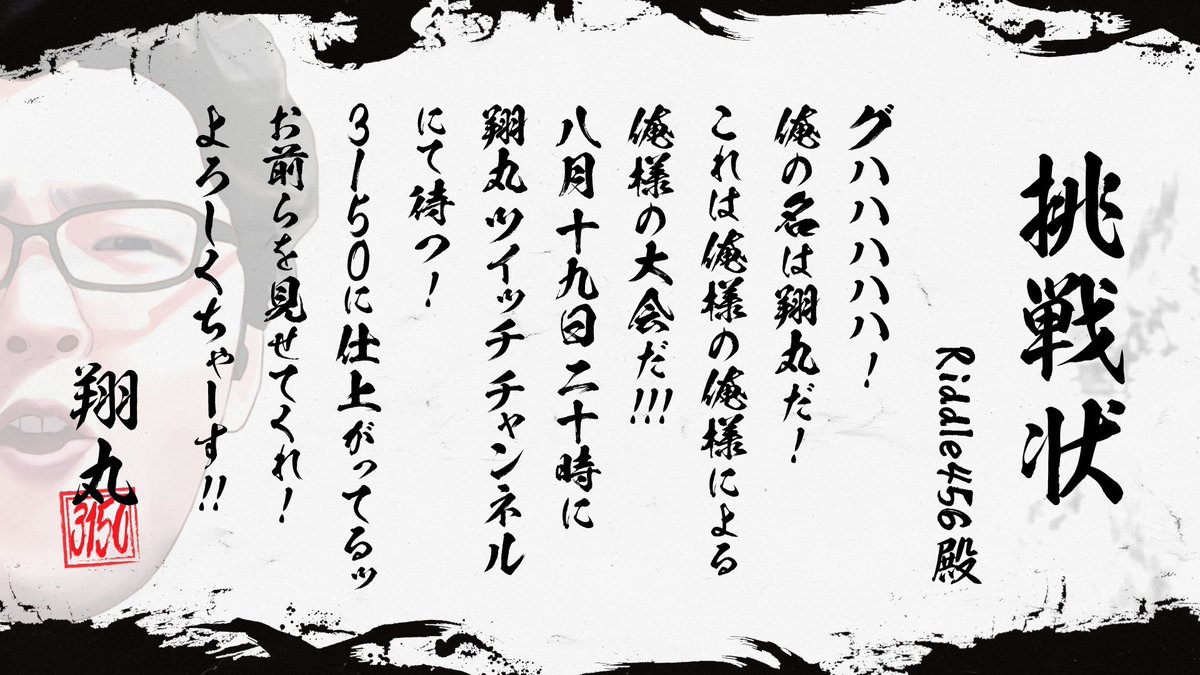 挑戦状
Riddle456殿
グハハハハハ！
俺の名は翔丸だ！
これは俺様の俺様による
俺様の大会だ!!!
八月十九日二十時に
翔丸ツイッチチャンネル
にて待つ！
3150に仕上がってるッ
お前らを見せてくれ！
よろしくちゃーす!!
翔丸
3150